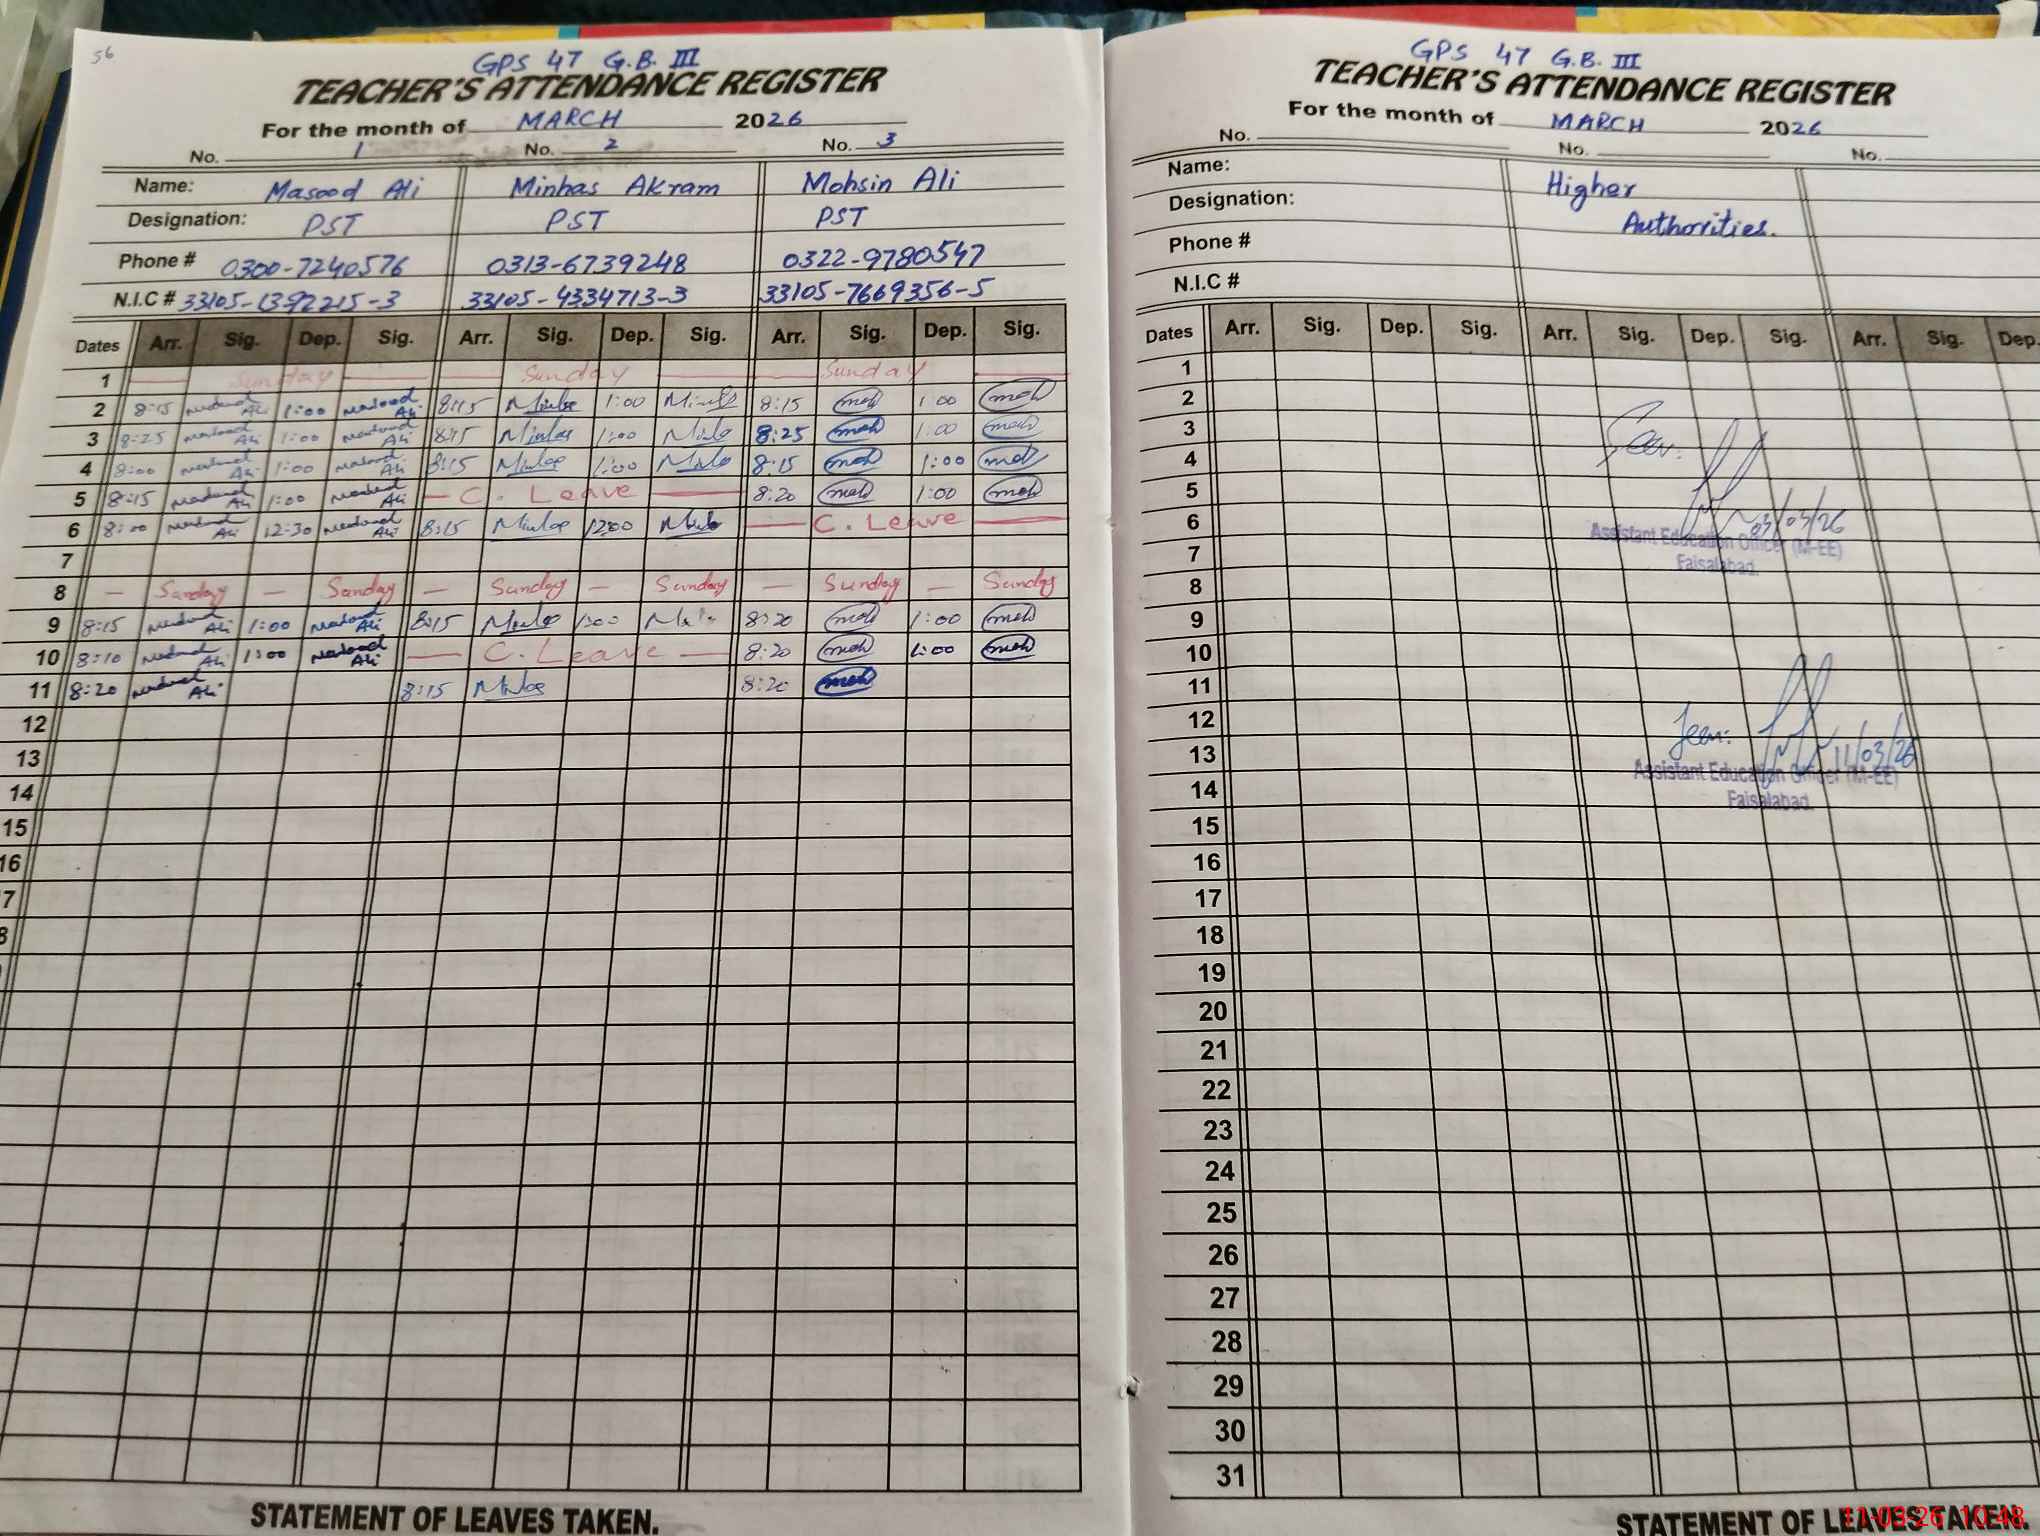 56
GPS 47 G.B. III
TEACHER'S ATTENDANCE REGISTER
For the month of MARCH 2026
No. 1 No. 2 No. 3
Name: Masood Ali Minhas Akram Mohsin Ali
Designation: PST PST PST
Phone # 0300-7240576 0313-6739248 0322-9780547
N.I.C # 33105-1392215-3 33105-4334713-3 33105-7669356-5
Dates Arr. Sig. Dep. Sig. Arr. Sig. Dep. Sig. Arr. Sig. Dep. Sig.
1 Sunday Sunday Sunday
2 8:15 Masood Ali 1:00 Masood Ali 8:15 Minhas 1:00 Minhas 8:15 moh 1:00 moh
3 8:25 Masood Ali 1:00 Masood Ali 8:15 Minhas 1:00 Minhas 8:25 moh 1:00 moh
4 8:00 Masood Ali 1:00 Masood Ali 8:15 Minhas 1:00 Minhas 8:15 moh 1:00 moh
5 8:15 Masood Ali 1:00 Masood Ali C. Leave 8:20 moh 1:00 moh
6 8:00 Masood Ali 12:30 Masood Ali 8:15 Minhas 12:00 Minhas C. Leave
7
8 Sunday Sunday Sunday Sunday Sunday Sunday
9 8:15 Masood Ali 1:00 Masood Ali 8:15 Minhas 1:00 Minhas 8:20 moh 1:00 moh
10 8:10 Masood Ali 1:00 Masood Ali C. Leave 8:20 moh 1:00 moh
11 8:20 Masood Ali 8:15 Minhas 8:20 moh
12
13
14
15
16
7
8
STATEMENT OF LEAVES TAKEN.
GPS 47 G.B. III
TEACHER'S ATTENDANCE REGISTER
For the month of MARCH 2026
No. No. No.
Name: Higher
Designation: Authorities.
Phone #
N.I.C #
Dates Arr. Sig. Dep. Sig. Arr. Sig. Dep. Sig. Arr. Sig. Dep.
1
2
3
4 Seen:
5
6 03/03/26
Assistant Education Officer (M-EE)
7 Faisalabad.
8
9
10
11
12
13 Seen: 11/03/26
Assistant Education Officer (M-EE)
14 Faisalabad.
15
16
17
18
19
20
21
22
23
24
25
26
27
28
29
30
31
STATEMENT OF LEAVES TAKEN.
11-03-26 10:48